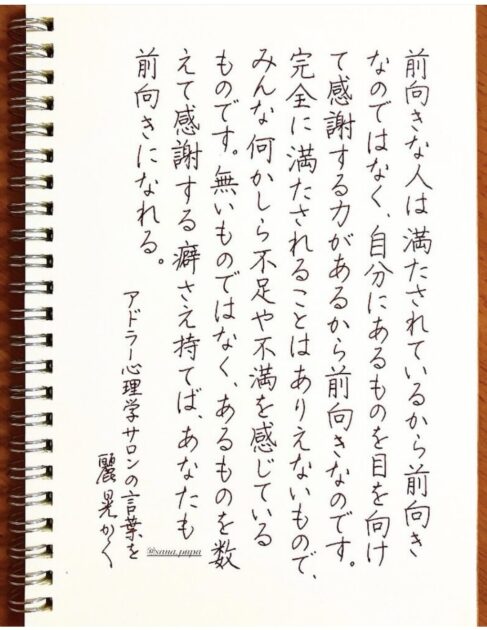 前向きな人は満たされているから前向き
なのではなく、自分にあるものを目を向け
て感謝する力があるから前向きなのです。
完全に満たされることはありえないもので、
みんな何かしら不足や不満を感じている
ものです。無いものではなく、あるものを数
えて感謝する癖さえ持てば、あなたも
前向きになれる。
アドラー心理学サロンの言葉を
麗晃かく
@sana.papa